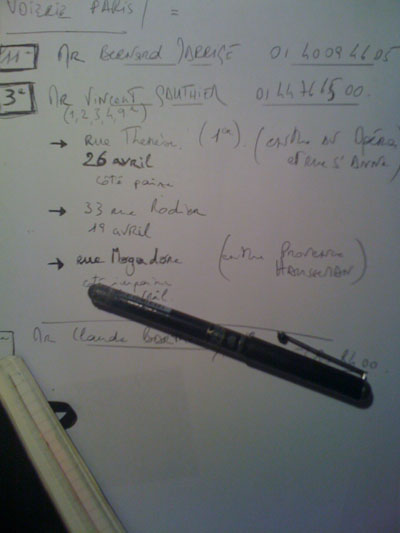 VOIZRIE PARIS / =
11e Mr BERNARD JARRIGE 01 40 09 46 05
3e Mr VINCENT GAUTHIER 01 44 76 65 00.
(1,2,3,4,9e)
→ rue Thérèse. (1er). (entre av Opéra
26 avril et rue Ste Anne)
côté paire
→ 33 rue Rodier
19 avril
→ rue Mogador (entre Provence
côté impaire HAUSSMAN)
Mr Claude